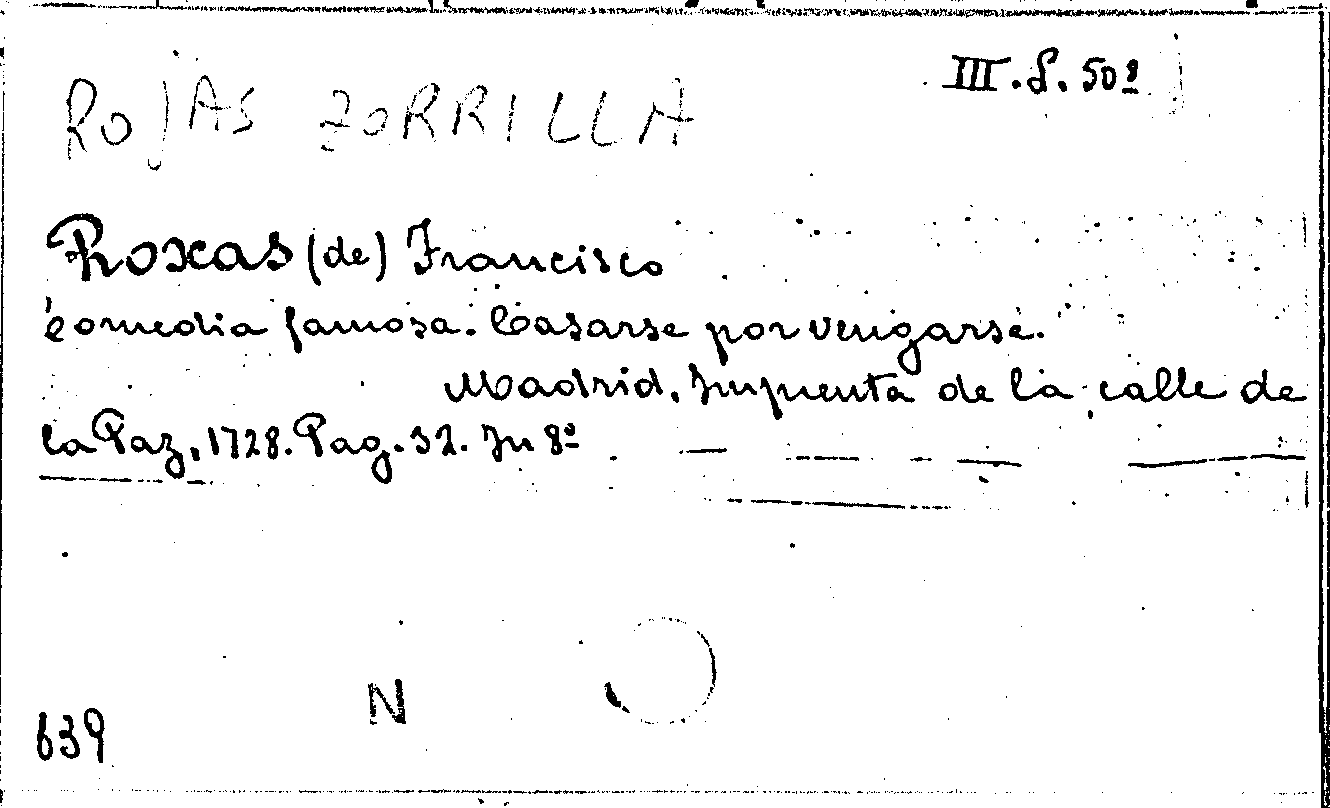 III. S. 50²
ROJAS ZORRILLA
Roxas (de) Francisco
Comedia famosa. Casarse por vengarse.
Madrid. Imprenta de la calle de
la Paz, 1728. Pag. 32. In 8º
N
639